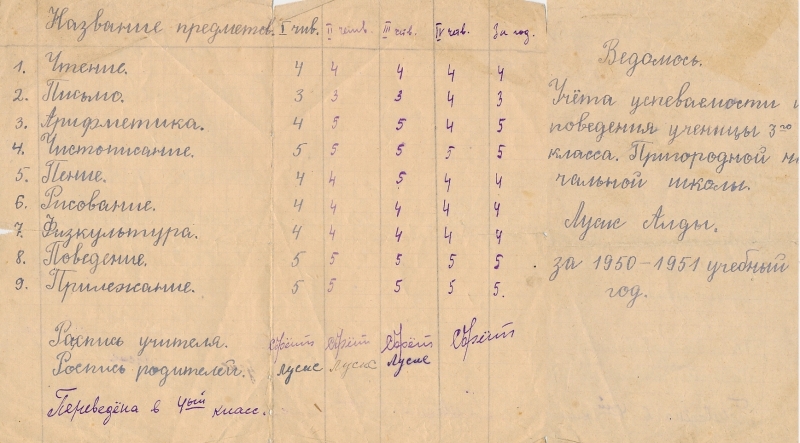 Название предметов. I чив. II четв. III чв. IV чав. За год.
1. Чтение. 4 4 4 4 4
2. Письмо. 3 3 3 4 3
3. Арифметика. 4 5 5 4 5
4. Чистописание. 5 5 5 5 5
5. Пение. 4 4 5 4 4
6. Рисование. 4 4 4 4 4
7. Физкультура. 4 4 4 4 4
8. Поведение. 5 5 5 5 5
9. Прилежание. 5 5 5 5 5.
Роспись учителя.
Роспись родителей. Лусис Лусис Лусис
Переведёна в 4ый класс.
Ведомось.
Учёта успеваемости и
поведения ученицы 3го
класса. Пригородной на
чальной школы.
Лусис Алды.
за 1950-1951 учебный
год.